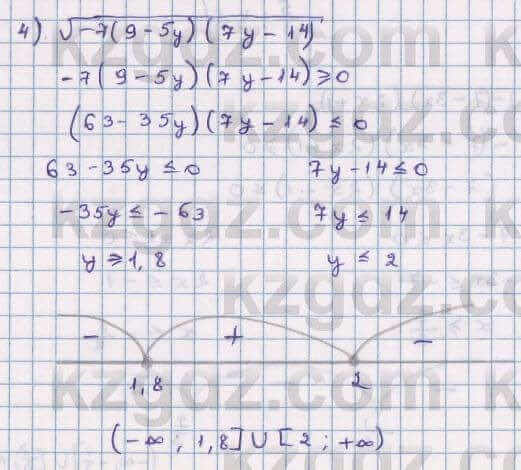 4) √-7(9-5y)(7y-14)
-7(9-5y)(7y-14)⩾0
(63-35y)(7y-14)≤0
63-35y≤0 7y-14≤0
-35y≤-63 7y≤14
y⩾1,8 y≤2
- + -
1,8 2
(-∞; 1,8]∪[2; +∞)
kzgdz.com